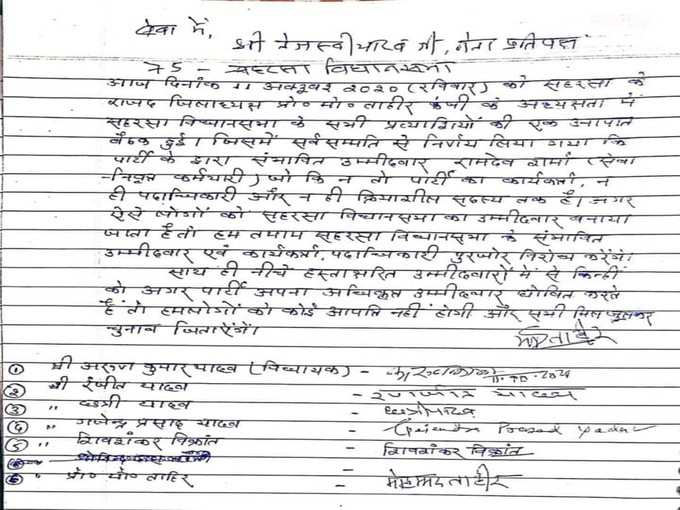 सेवा में,
श्री तेजस्वी यादव जी, नेता प्रतिपक्ष
75 - सहरसा विधानसभा
आज दिनांक 11 अक्टूबर 2020 (रविवार) को सहरसा के
राजद जिलाध्यक्ष प्रो॰ मो॰ ताहीर के अध्यक्षता में
सहरसा विधानसभा के सभी प्रत्याशियों की एक आपात
बैठक हुई। जिसमें सर्वसम्मति से निर्णय लिया गया कि
पार्टी के द्वारा संभावित उम्मीदवार रामदेव शर्मा (सेवा
-निवृत कर्मचारी) जो कि न तो पार्टी का कार्यकर्ता, न
ही पदाधिकारी और न ही क्रियाशील सदस्य तक है। अगर
ऐसे लोगों को सहरसा विधानसभा का उम्मीदवार बनाया
जाता है तो हम तमाम सहरसा विधानसभा के संभावित
उम्मीदवार एवं कार्यकर्ता, पदाधिकारी पुरजोर विरोध करेंगें।
साथ ही नीचे हस्ताक्षरित उम्मीदवारों में से किन्हीं
को अगर पार्टी अपना अधिकृत उम्मीदवार घोषित करते
हैं तो हमलोगों को कोई आपत्ति नहीं होगी और सभी मिलजुलकर
चुनाव जितायेंगें।
① श्री अरुण कुमार यादव (विधायक) -
② श्री रंजीत यादव -
③ " छत्री यादव -
④ " गजेन्द्र प्रसाद यादव - Gajendra Prasad Yadav
⑤ " शिवशंकर विक्रांत - शिवशंकर विक्रांत
⑥ " प्रो॰ मो॰ ताहिर - मोहम्मद ताहीर